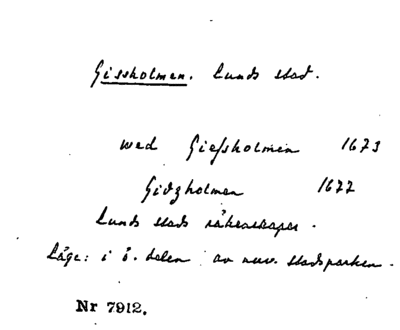 Gissholmen. Lunds stad.
wed Giessholmen 1673
Gidzholmen 1677
Lunds stads räkenskaper.
Läge: i ö. delen av nuv. stadsparken.
Nr 7912.